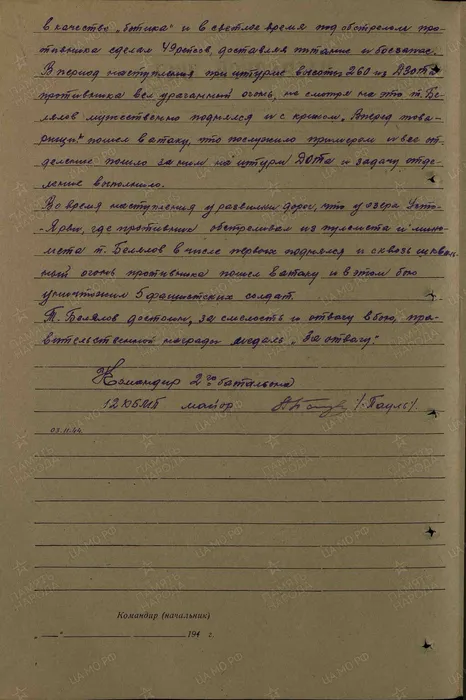 в качестве „ботика" и в светлое время под обстрелом про-
тивника сделал 49 рейсов, доставляя питание и боезапас.
В период наступления при штурме высоты 260 из ДЗОТа
противника вел ураганный огонь, не смотря на это т. Бе-
лялов мужественно поднялся и с криком „Вперед това-
рищи" пошел в атаку, что послужило примером и все от-
деление пошло за ним на штурм ДОТа и задачу отде-
ление выполнило.
Во время наступления у развилки дорог, что у озера
-Ярви, где противник обстреливал из пулемета и мино-
мета т. Белялов в числе первых поднялся и сквозь шкваль-
ный огонь противника пошел в атаку и в этом бою
уничтожил 5 фашистских солдат.
Т. Белялов достоин, за смелость и отвагу в бою, пра-
вительственной награды медаль „За отвагу".
Командир 2го батальона
12 КБМП майор /Пауль/.
03.11.44.
Командир (начальник)
„ " 194 г.
ПАМЯТЬ НАРОДА
ЦАМО.РФ